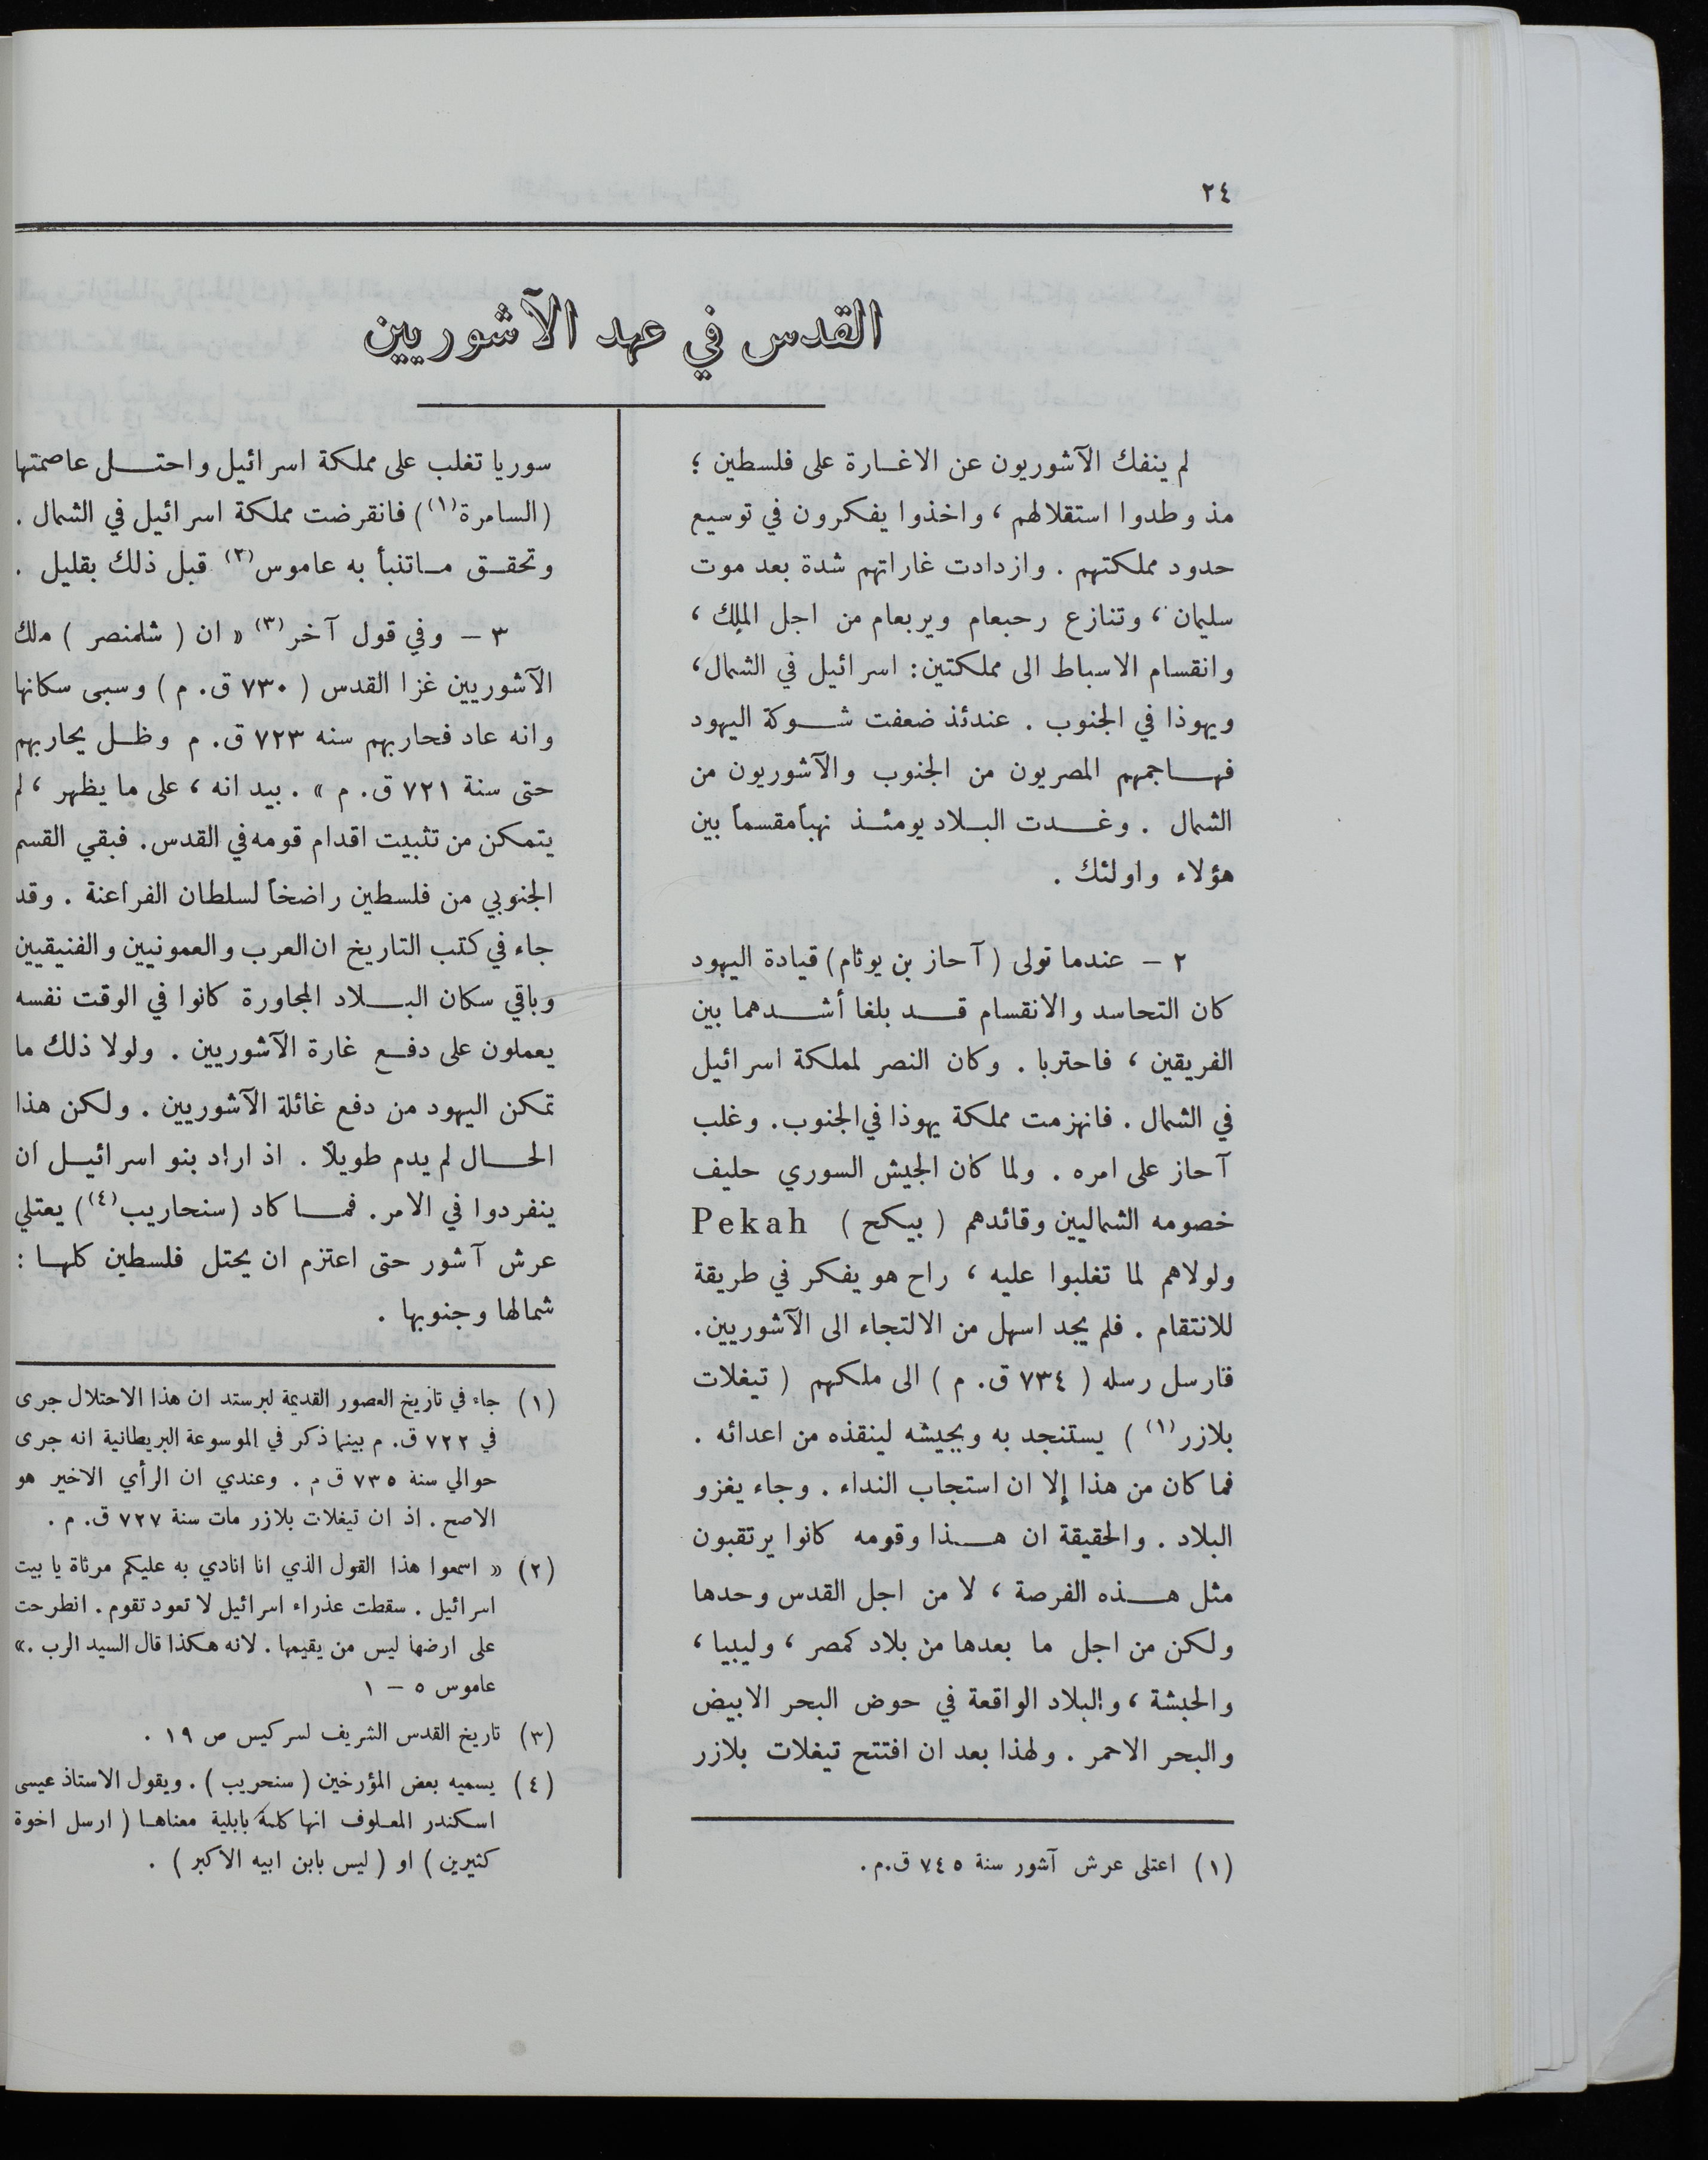 ٢٤
القدس في عهد الآشوريين
لم ينفك الآشوريون عن الاغارة على فلسطين ؛
مذ وطدوا استقلالهم ، واخذوا يفكرون في توسيع
حدود مملكتهم . وازدادت غاراتهم شدة بعد موت
سليمان ، وتنازع رحبعام ويربعام من اجل الملك ،
وانقسام الاسباط الى مملكتين : اسرائيل في الشمال ،
ويهوذا في الجنوب . عندئذ ضعفت شوكة اليهود
فهاجمهم المصريون من الجنوب والآشوريون من
الشمال . وغدت البلاد يومئذ نهباً مقسماً بين
هؤلاء واولئك .
٢ - عندما تولى ( آحاز بن يوثام ) قيادة اليهود
كان التحاسد والانقسام قد بلغا أشدهما بين
الفريقين ، فاحتربا . وكان النصر لمملكة اسرائيل
في الشمال . فانهزمت مملكة يهوذا في الجنوب . وغلب
آحاز على امره . ولما كان الجيش السوري حليف
خصومه الشماليين وقائدهم ( بيكح ) Pekah
ولولاهم لما تغلبوا عليه ، راح هو يفكر في طريقة
للانتقام . فلم يجد اسهل من الالتجاء الى الآشوريين .
فارسل رسله ( ٧٣٤ ق. م ) الى ملكهم ( تيغلات
بلازر (١) ) يستنجد به وبجيشه لينقذه من اعدائه .
فما كان من هذا إلا ان استجاب النداء . وجاء يغزو
البلاد . والحقيقة ان هذا وقومه كانوا يرتقبون
مثل هذه الفرصة ، لا من اجل القدس وحدها
ولكن من اجل ما بعدها من بلاد كمصر ، وليبيا ،
والحبشة ، والبلاد الواقعة في حوض البحر الابيض
والبحر الاحمر . ولهذا بعد ان افتتح تيغلات بلازر
(١) اعتلى عرش آشور سنة ٧٤٥ ق.م.
سوريا تغلب على مملكة اسرائيل واحتل عاصمتها
(السامرة (١)) فانقرضت مملكة اسرائيل في الشمال .
وتحقق ماتنبأ به عاموس (٢) قبل ذلك بقليل .
٣ - وفي قول آخر (٣) « ان ( شلمنصر ) ملك
الآشوريين غزا القدس ( ٧٣٠ ق. م ) وسبى سكانها
وانه عاد فحاربهم سنه ٧٢٣ ق. م وظل يحاربهم
حتى سنة ٧٢١ ق. م » . بيد انه ، على ما يظهر ، لم
يتمكن من تثبيت اقدام قومه في القدس . فبقي القسم
الجنوبي من فلسطين راضخاً لسلطان الفراعنة . وقد
جاء في كتب التاريخ ان العرب والعمونيين والفنيقيين
وباقي سكان البلاد المجاورة كانوا في الوقت نفسه
يعملون على دفع غارة الآشوريين . ولولا ذلك ما
تمكن اليهود من دفع غائلة الآشوريين . ولكن هذا
الحال لم يدم طويلاً . اذ اراد بنو اسرائيل ان
ينفردوا في الامر . فما كاد (سنحاريب (٤)) يعتلي
عرش آشور حتى اعتزم ان يحتل فلسطين كلها :
شمالها وجنوبها .
(١) جاء في تاريخ العصور القديمة لبرستد ان هذا الاحتلال جرى
في ٧٢٢ ق. م بينما ذكر في الموسوعة البريطانية انه جرى
حوالي سنة ٧٣٥ ق م . وعندي ان الرأي الاخير هو
الاصح . اذ ان تيغلات بلازر مات سنة ٧٢٧ ق. م .
(٢) « اسمعوا هذا القول الذي انا انادي به عليكم مرثاة يا بيت
اسرائيل . سقطت عذراء اسرائيل لا تعود تقوم . انطرحت
على ارضها ليس من يقيمها . لانه هكذا قال السيد الرب .»
عاموس ٥ - ١
(٣) تاريخ القدس الشريف لسركيس ص ١٩ .
(٤) يسميه بعض المؤرخين ( سنحريب ) . ويقول الاستاذ عيسى
اسكندر المعلوف انها كلمة بابلية معناها ( ارسل اخوة
كثيرين ) او ( ليس بابن ابيه الاكبر ) .